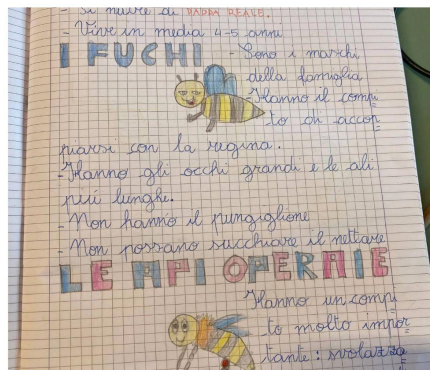 - Si nutre di PAPPA REALE.
- Vive in media 4-5 anni
I FUCHI
- Sono i maschi
della famiglia
- Hanno il compi
to di accop
piarsi con la regina.
- Hanno gli occhi grandi e le ali
più lunghe.
- Non hanno il pungiglione
- Non possano succhiare il nettare
LE API OPERAIE
Hanno un compi
to molto impor
tante: svolazza